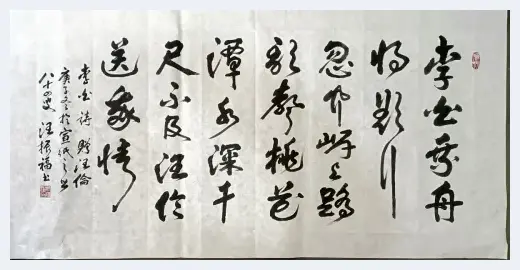 李白乘舟
将欲行
忽闻岸上踏
歌聲桃花
潭水深千
尺不及汪伦
送我情
李白诗赠汪倫
庚子冬於宣
八十叟汪振福书